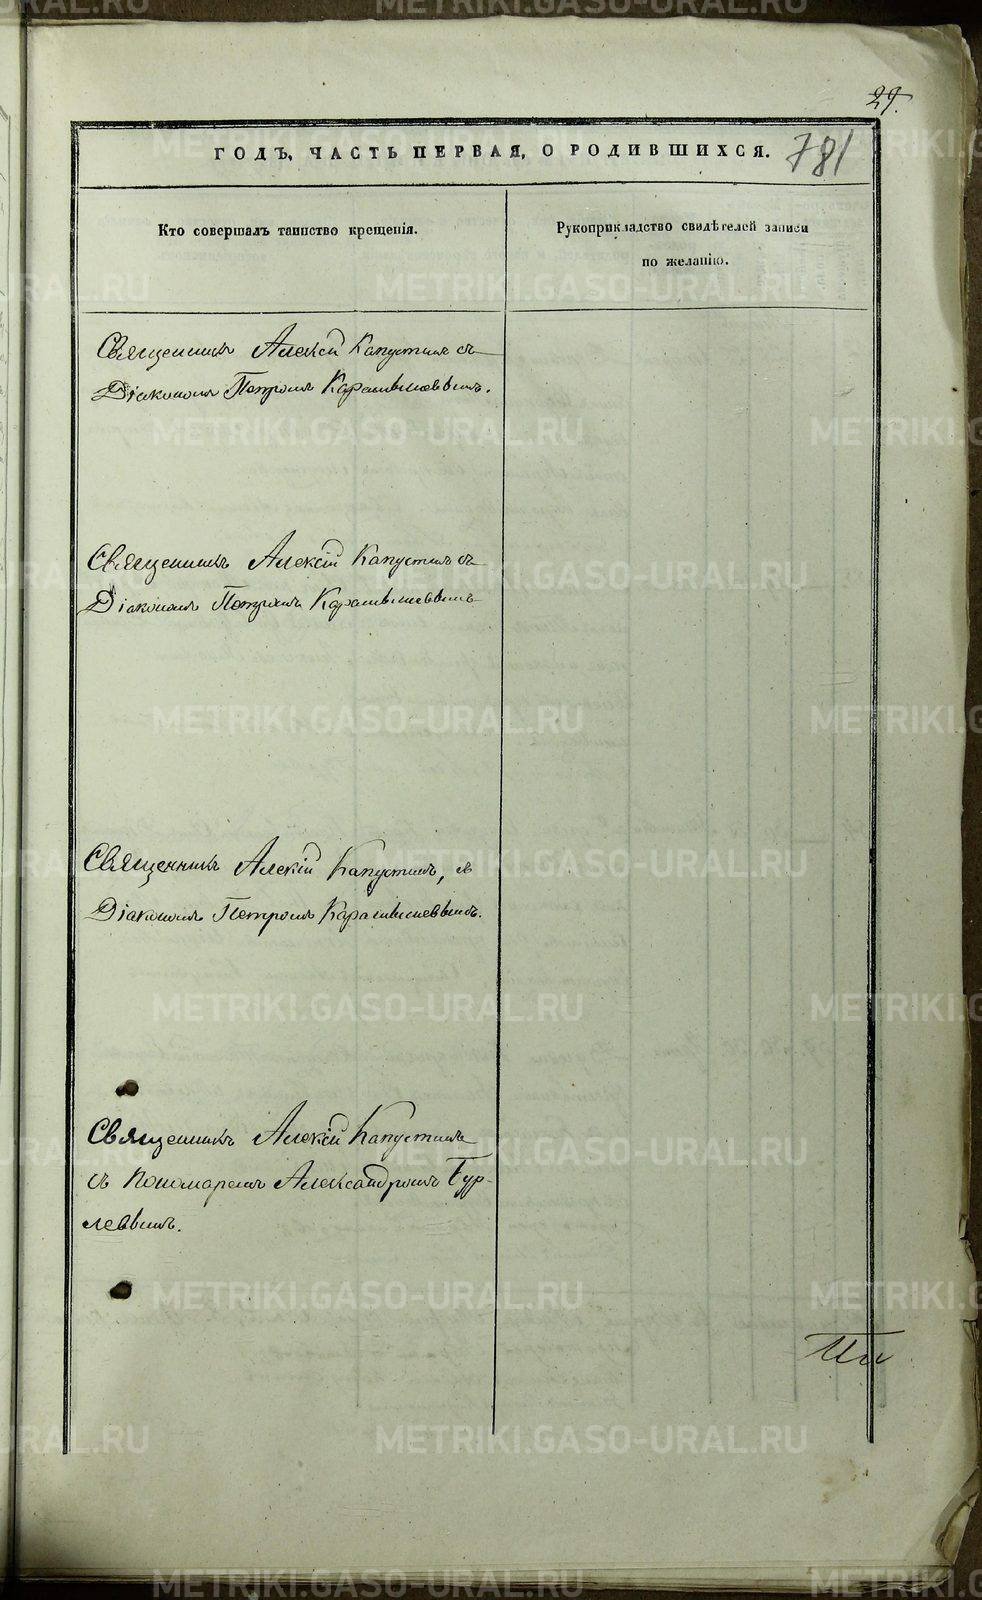 29.
ГОДЪ, ЧАСТЬ ПЕРВАЯ, О РОДИВШИХСЯ. 781
Кто совершалъ таинство крещенія.
Рукоприкладство свидѣтелей записи
по желанію.
Священникъ Алексій Капустинъ съ
Діакономъ Петромъ
Священникъ Алексій Капустинъ съ
Діакономъ Петромъ
Священникъ Алексій Капустинъ, съ
Діакономъ Петромъ
Священникъ Алексій Капустинъ
съ Пономаремъ Александромъ Бур-
левымъ.
METRIKI.GASO-URAL.RU